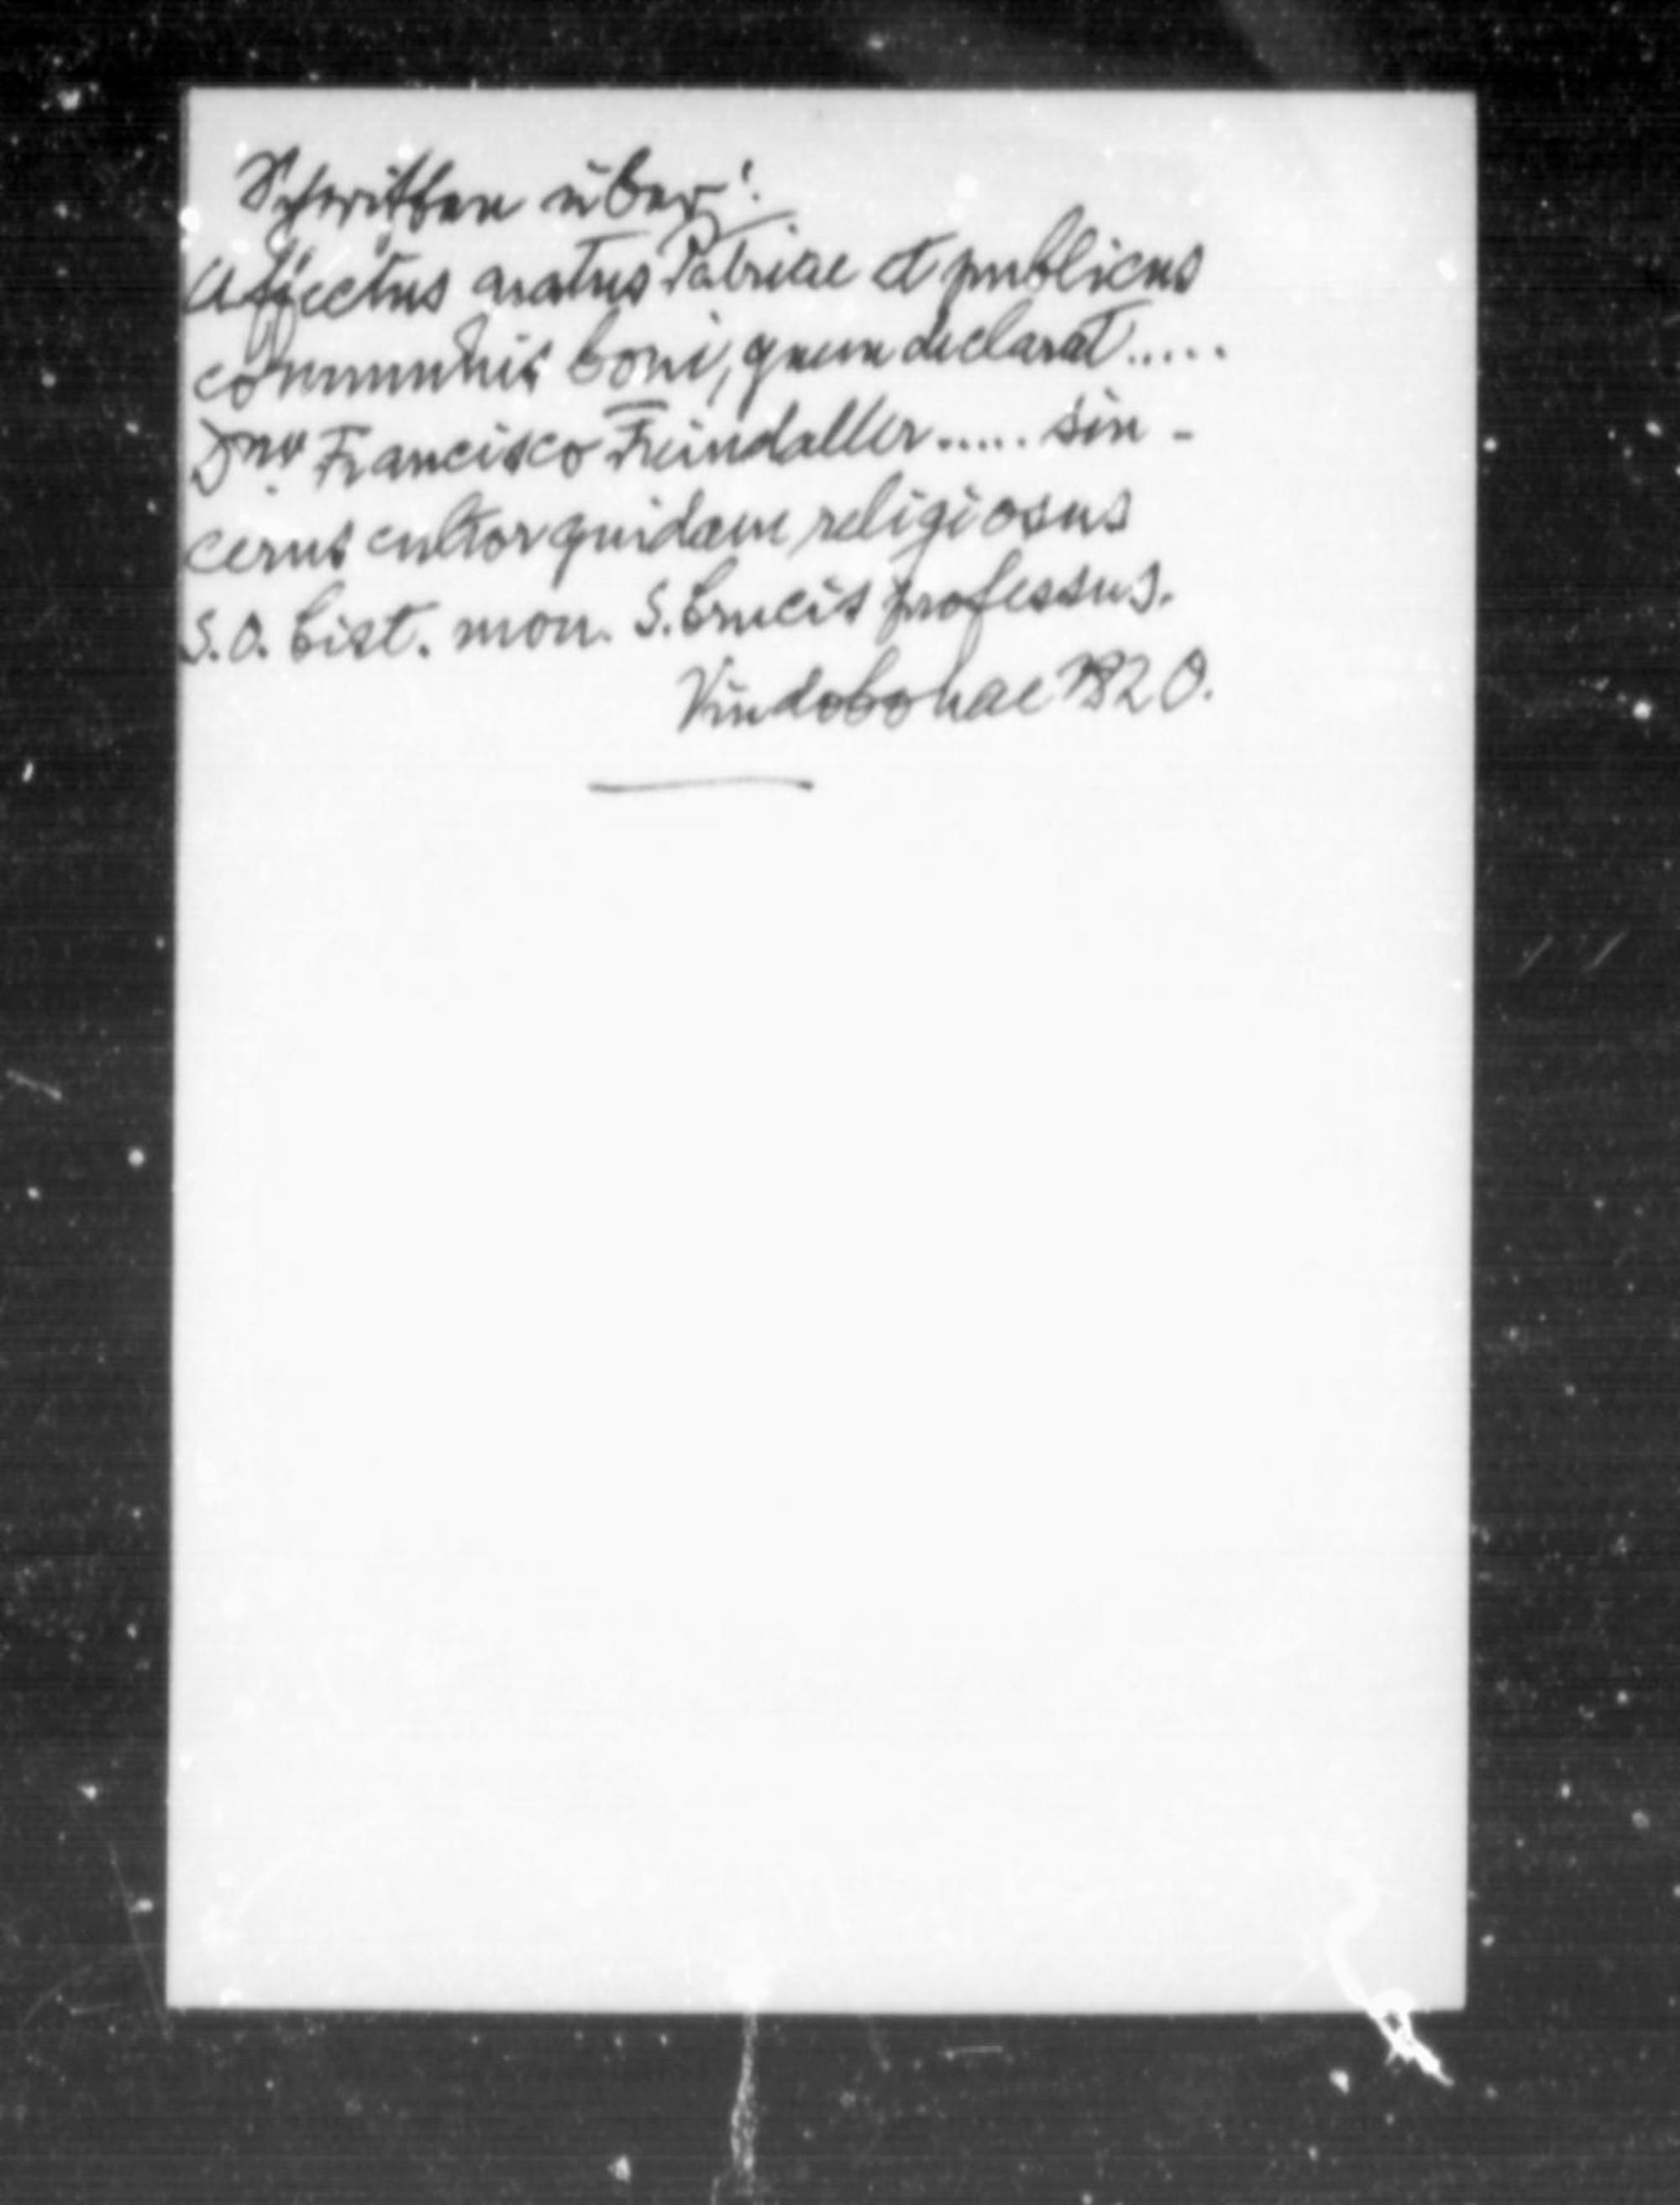 Schriften über:
Affectus gratus Patriae et publicus
communis boni, quem declarat.....
Dno Francisco Freindaller..... sin-
cerus cultor quidam religiosus
S.O. Cist. mon. S. Crucis professus.
Vindobonae 1820.